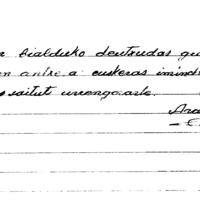 bialduko deutsudas gu
en antxe a euskeras imind
saitut urrengorarte.
Ara